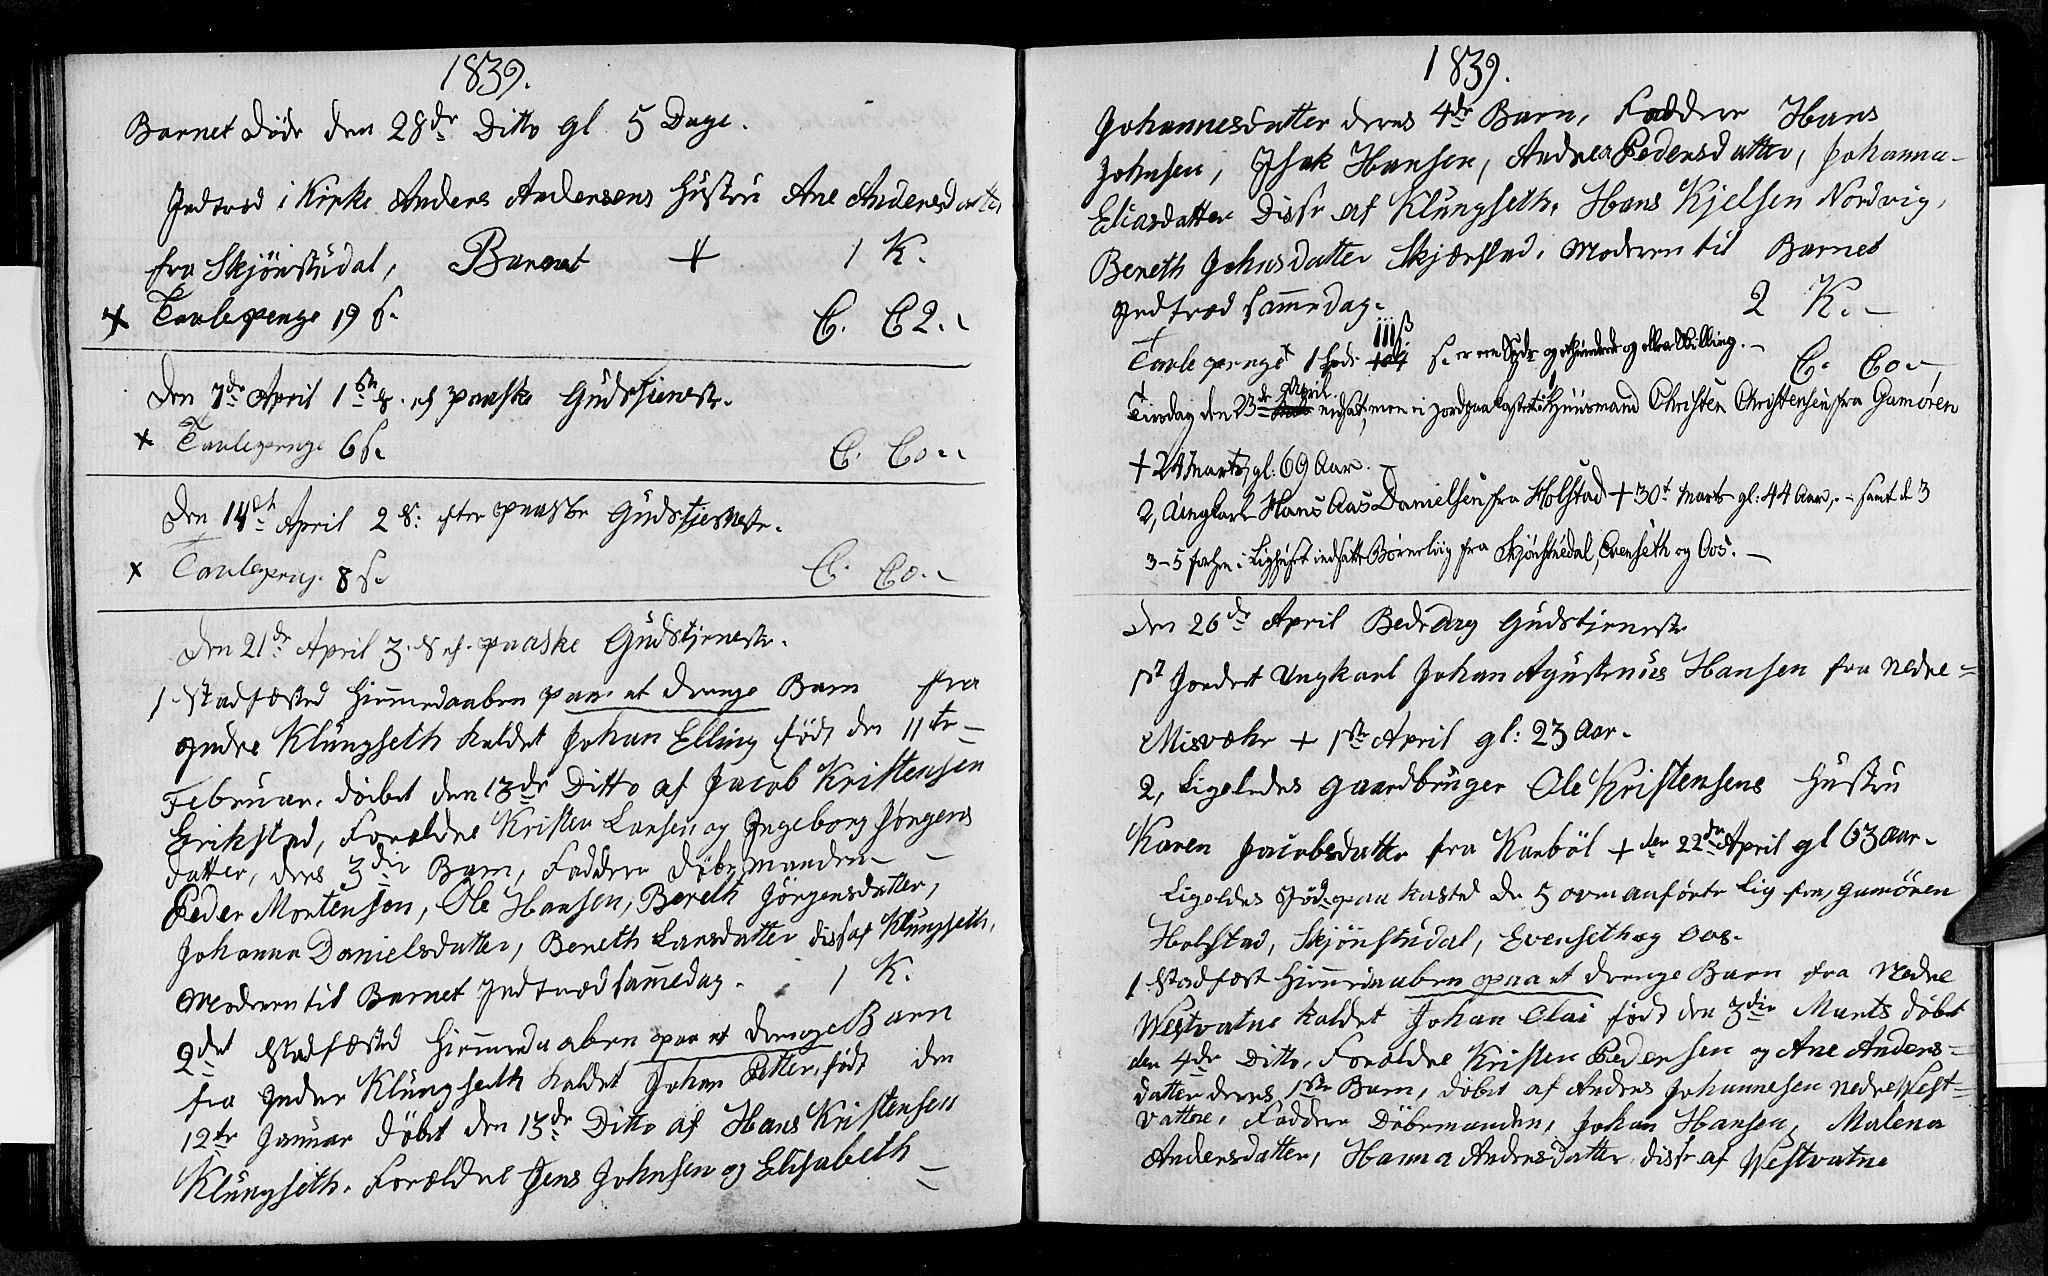 1839.
Barnet døde den 28de Ditto gl 5 Dage.
Indtræd i Kirke Anders Andersens Hustru Ane Andersdatter
fra Skjönstudal, Barnet + 1 K.
x Tavlepenge 19 s. C. C2.
Den 7de April 1ste S. ef paaske Gudstjeneste.
x Tavlepenge 6 s. C. C0.
Den 14de April 2 S: efter paaske Gudstjeneste.
x Tavlepenge 8 s. C. C0.
Den 21de April 3. S ef. paaske Gudstjeneste.
1 Stadfæsted Hiemmedaaben paa et Drenge Barn fra
Indre Klungseth kaldet Johan Elling född den 11te
Februar. döbet den 13de Ditto af Jacob Kristensen
Erikstad, Forældre Kristen Larsen og Ingeborg Jørgens
datter, deres 3die Barn, Faddere Döbemanden
Peder Mortensen, Ole Hansen, Bereth Jörgensdatter,
Johanna Danielsdatter, Bereth Larsdatter disse af Klungseth.
Moderen til Barnet Indtræd sammedag. 1 K.
2det Stadfæsted Hiemmedaaben paa et Drenge Barn
fra Indre Klungseth kaldet Johan Petter, född den
12te Januar döbet den 13de Ditto af Hans Kristensen
Klungseth. Forældre Jens Johnsen og Elisabeth
1839.
Johannesdatter deres 4de Barn, Faddere Hans
Johnsen, Isak Hansen, Andrea Pedersdatter, Johanna
Eliasdatter Disse af Klungseth. Hans Kjelsen Nordvig,
Bereth Johnsdatter Skjærstad. Moderen til Barnet
Indtræd sammedag. 2 K.
Tavlepenge 1 Spd. s. er een Spds og og elleve Skilling. C. C0.
Tirsdag den 23de April nedsat, men ei jordpaakastet Huusmand Christen Christensen fra Gumören
+ 24 Marts gl: 69 Aar.
2, Ungkarl Hans Aas Danielsen fra Holstad + 30t Marts gl: 44 Aar, - samt de 3
3-5 forhen i Liighuset indsatte Börneliig fra Skjönstuedal, Evenseth og Oos.
Den 26de April Bededag Gudstjeneste
1st Jordet Ungkarl Johan Agustinus Hansen fra Nedre
Misvæhr + 1ste April gl: 23 Aar.
2, Ligeledes Gaardbruger Ole Kristensens Hustru
Karen Jacobsdatter fra Karböl + den 22de April gl 63 Aar.
Ligeldes Jödpaakasted de 5 ovenanförte Lig fra, Gumören
Holstad, Skjönstudal, Evenseth og Oos.
1 Stadfæst Hiemmedaaben paa et Drenge Barn fra Nedre
Westvatne kaldet Johan Olai född den 3die Marts döbet
den 4de Ditto, Forældre Kristen Pedersen og Ane Anders-
datter deres 1ste Barn, döbet af Anders Johannesen Nedre West-
vattne, Faddere Döbemanden, Johan Hansen, Malena
Andersdatter, Hanna Andersdatter disse af Westvatne